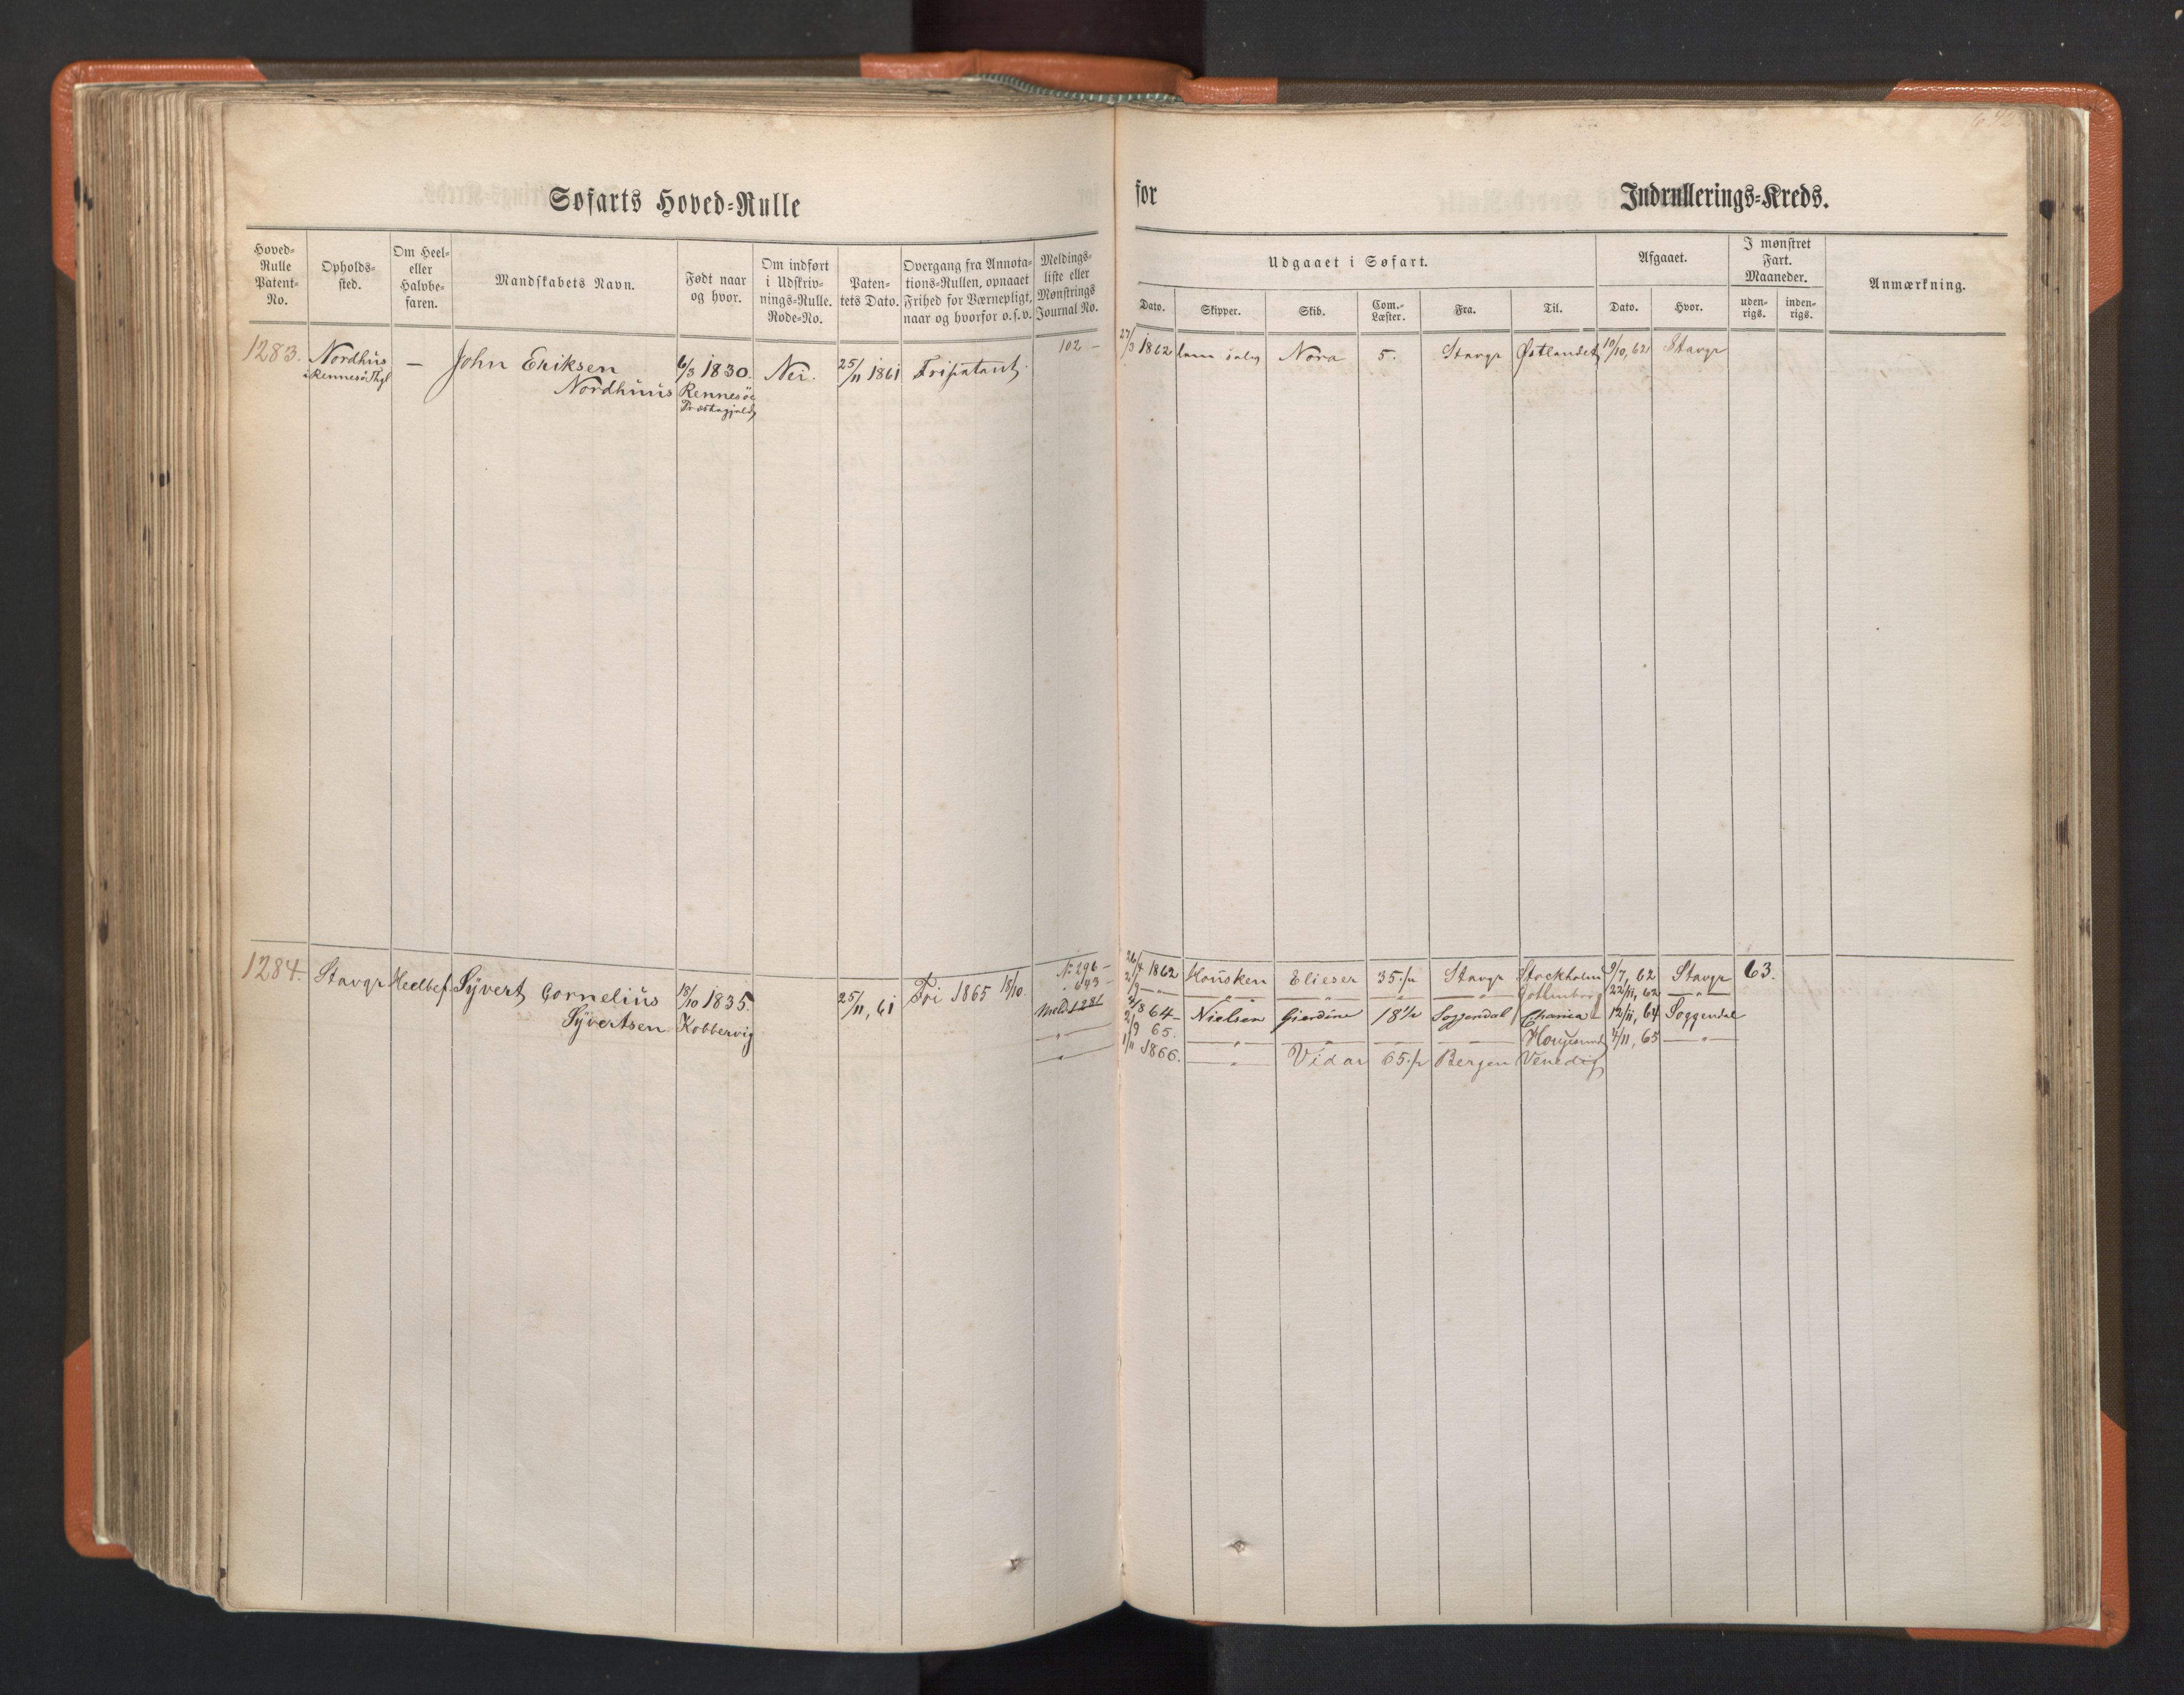 Søfarts Hoved-Rulle
for
Indrullerings-Kreds.
Hoved-Rulle Patent-No.
Opholds-sted.
Om Heel- eller Halvbe-faren.
Mandskabets Navn.
Født naar og hvor.
Om indført i Udskriv-nings-Rulle. Rode-No.
Paten-tets Dato.
Overgang fra Annota-tions-Rullen, opnaaet Frihed for Værnepligt, naar og hvorfor o.s.v.
Meldings-liste eller Mønstrings Journal No.
Udgaaet i Søfart.
Dato.
Skipper.
Skib.
Com.-Læster.
Fra.
Til.
Afgaaet.
Dato.
Hvor.
I mønstret Fart. Maaneder.
uden-rigs.
inden-rigs.
Anmærkning.
1283. Nordhus — John Eriksen 6/3 1830. Nei. 25/11 1861 102 — 27/3 1862 Nora 5. Stavgr Østlandet 10/10, 62 Stavgr
i Rennesø Nordhuus Rennesø
Præstegjeld
1284. Stavgr Heelbef. Syvert Cornelius 18/10 1835. 25/11, 61 Fri 1865 18/10. No 296 — 26/4 1862 Housken Elieser 35 Stavgr Stockholm 9/7, 62 Stavgr 63.
Syvertsen Kobbervig 643 — 2/9 —"— —"— —"— —"— —"— Gothenborg 22/11, 62 —"—
Meld. 1281 64 — Nielsen Gierdine 18 1/2 Soggendal Chania 12/11, 64 Soggendal
—"— 2/9 65. —"— —"— —"— —"— 4/11, 65 —"—
—"— 1/11 1866. —"— Vidar 65 Bergen Venedig